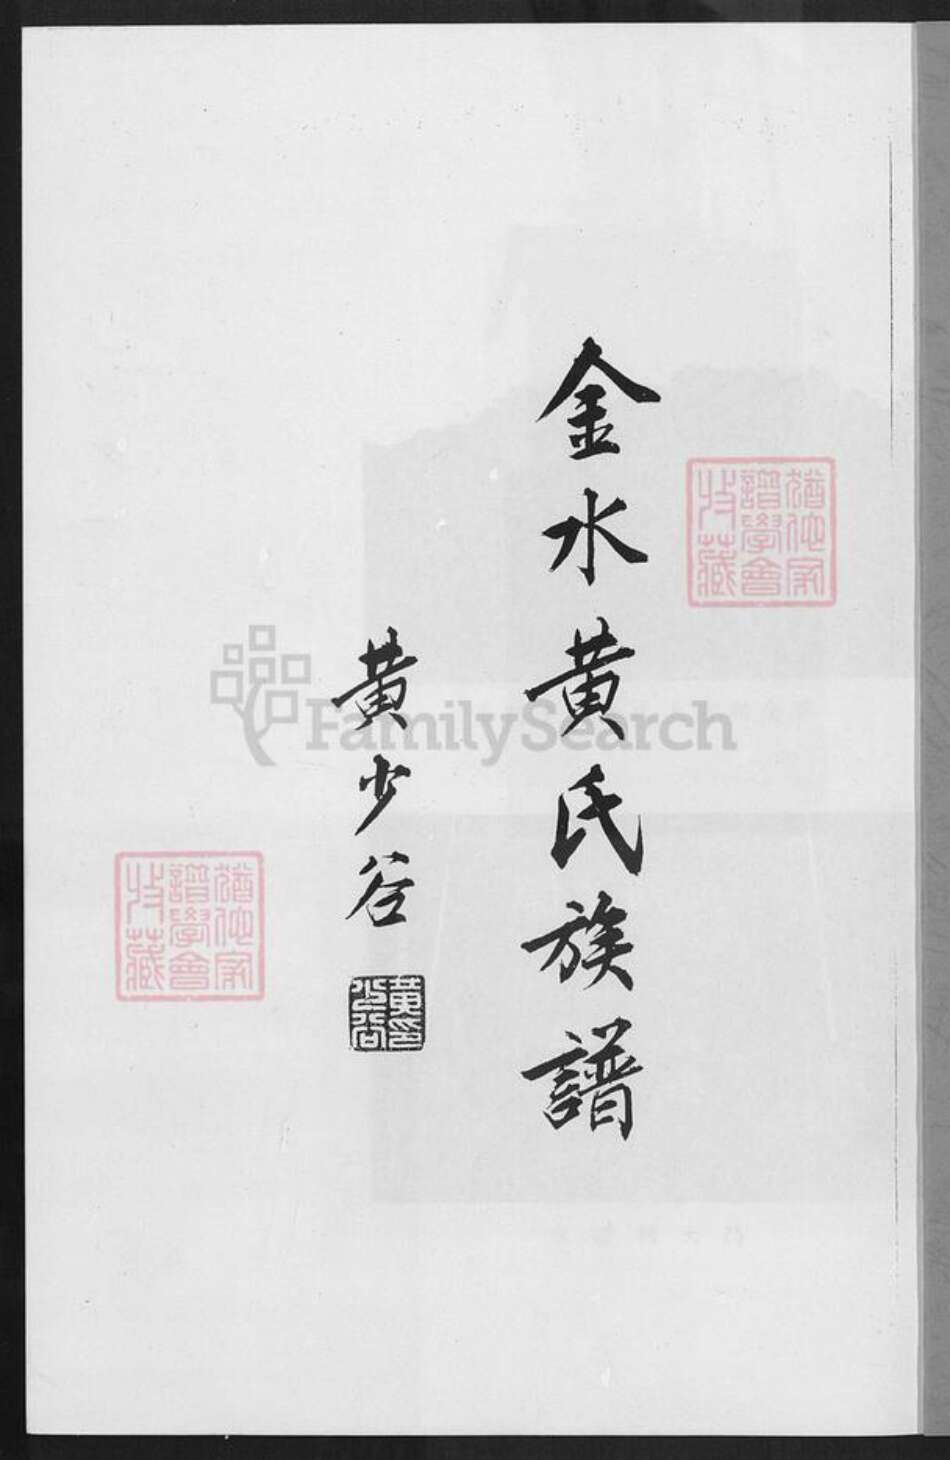 金水黄氏族譜
黄少谷
黄印少谷
猶他家譜學會收藏
猶他家譜學會收藏
FamilySearch